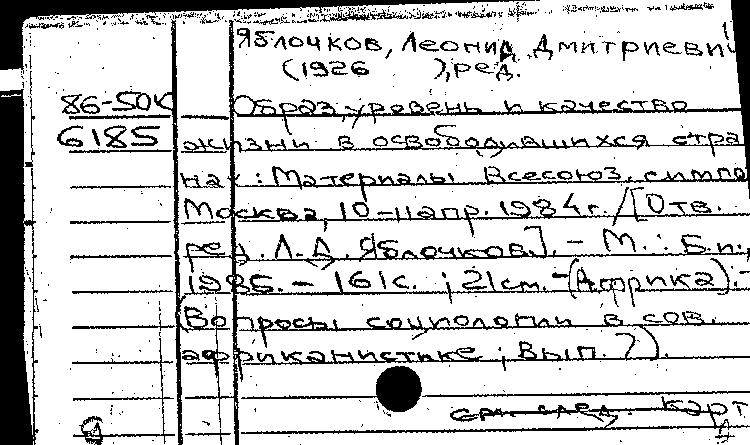 Яблочков, Леонид Дмитриевич
(1926     ), ред.
86-50К Образ, уровень и качество
6185 жизни в освободившихся стра
нах: Материалы Всесоюз. симпо
Москва, 10-11 апр. 1984 г. / [Отв.
ред. Л.Д. Яблочков]. - М.: Б.и.,
1985. - 161 с. ; 21 см. - (Африка). -
(Вопросы социологии в сов.
африканистике; Вып. 7).
см. след. карт